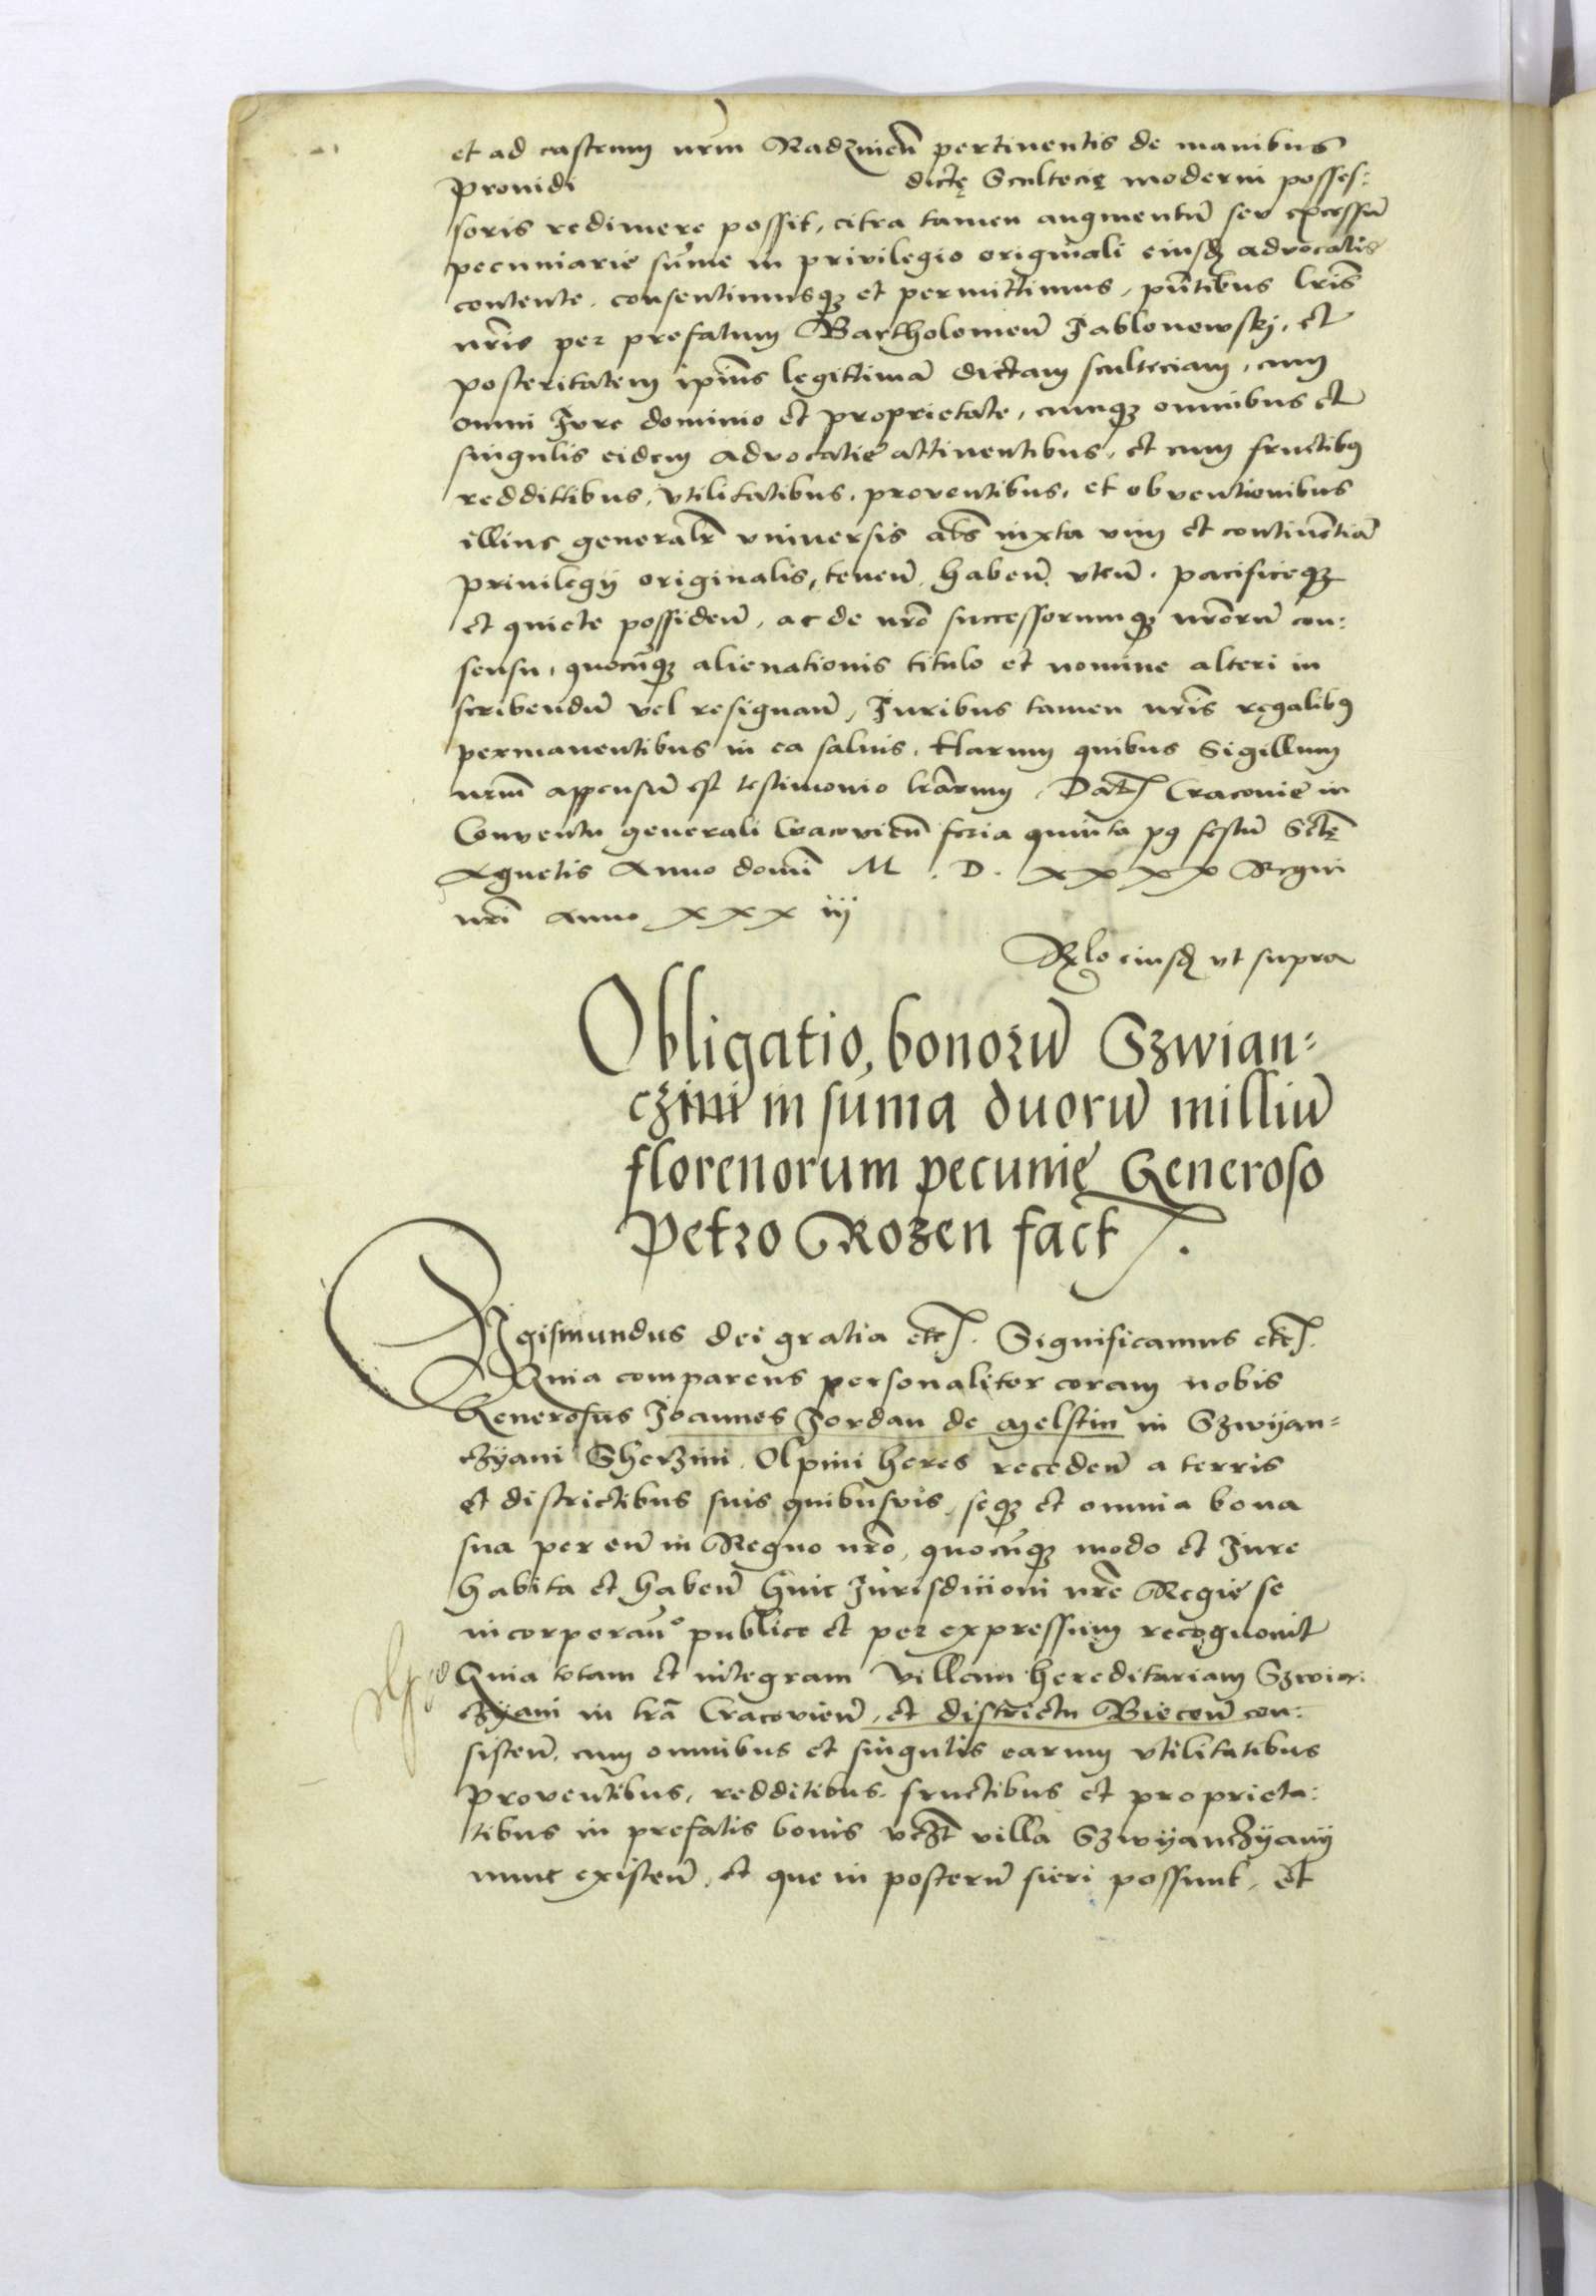 et ad castrum nrm̄ Radzineñ pertinentis de manibus
Prouidi dictę Scultecię moderni posses:
soris redimere possit, citra tamen augmentū seu excessū
pecuniarie sum̄e in privilegio originali eiusdꝫ advocatie
contente. consentimusqꝫ et permittimus, pn̄tibus lr̄is
nr̄is per prefatum Bartholomeū Jablonowskj, et
posteritatem ip̄ius legittimā dictam scultetiam, cum
omni Jure dominio et proprietate, cumqꝫ omnibus et
singulis eidem advocatie attinentibus, et cum fructibꝰ
reddittibus, vtilitatibus, proventibus, et obventionibus
illius generalr̄ vniversis alīs iuxta vim et continentiā
privilegij originalis, teneñ, habeñ, vteñ. pacificeqꝫ
et quiete possideñ, ac de nrō successorumqꝫ nrōrū con:
sensu, quocūqꝫ alienationis titulo et nomine alteri in
scribendū vel resignañ, Juribus tamen nr̄is regalibꝰ
permanentibus in ea saluis. Harum quibus Sigillum
nrm̄ appensū est testimonio lr̄arum. Datꝭ Cracovie in
Conventu generali Cracovieñ feria quinta pꝰ festū Sctę̄
Agnetis Anno domī M. D. xxxx Regni
nrī anno xxx iij
Rꝭlo eiusdꝫ vt supra
Obligatio, bonorū Szwian=
czini in sum̄a duorū milliū
florenorum pecunię Generoso
Petro Rozen factꝭ.
Sigismundus dei gratia etcꝭ. Significamus etcꝭ.
Quia comparens personaliter coram nobis
Generosus Joannes Jordan de Melstin in Szwyan=
czyani Sherzini. Olpini heres recedeñ a terris
et districtibus suis quibusvis, seqꝫ et omnia bona
sua per eū in Regno nrō, quocūqꝫ modo et Jure
habita et habeñ huic Jurisdicioni nrē Regie se
incorporañ° publice et per expressum recognouit
Quia totam et integram villam hereditariam Szwia:
czyani in trā Cracovieñ, et districtu Bieceñ con:
sisteñ, cum omnibus et singulis earum vtilitatibus
proventibus, redditibus, fructibus et proprieta:
tibus in prefatis bonis vczt̄ villa Szwyanczyany
nunc existeñ, et que in posterū fieri possunt, et